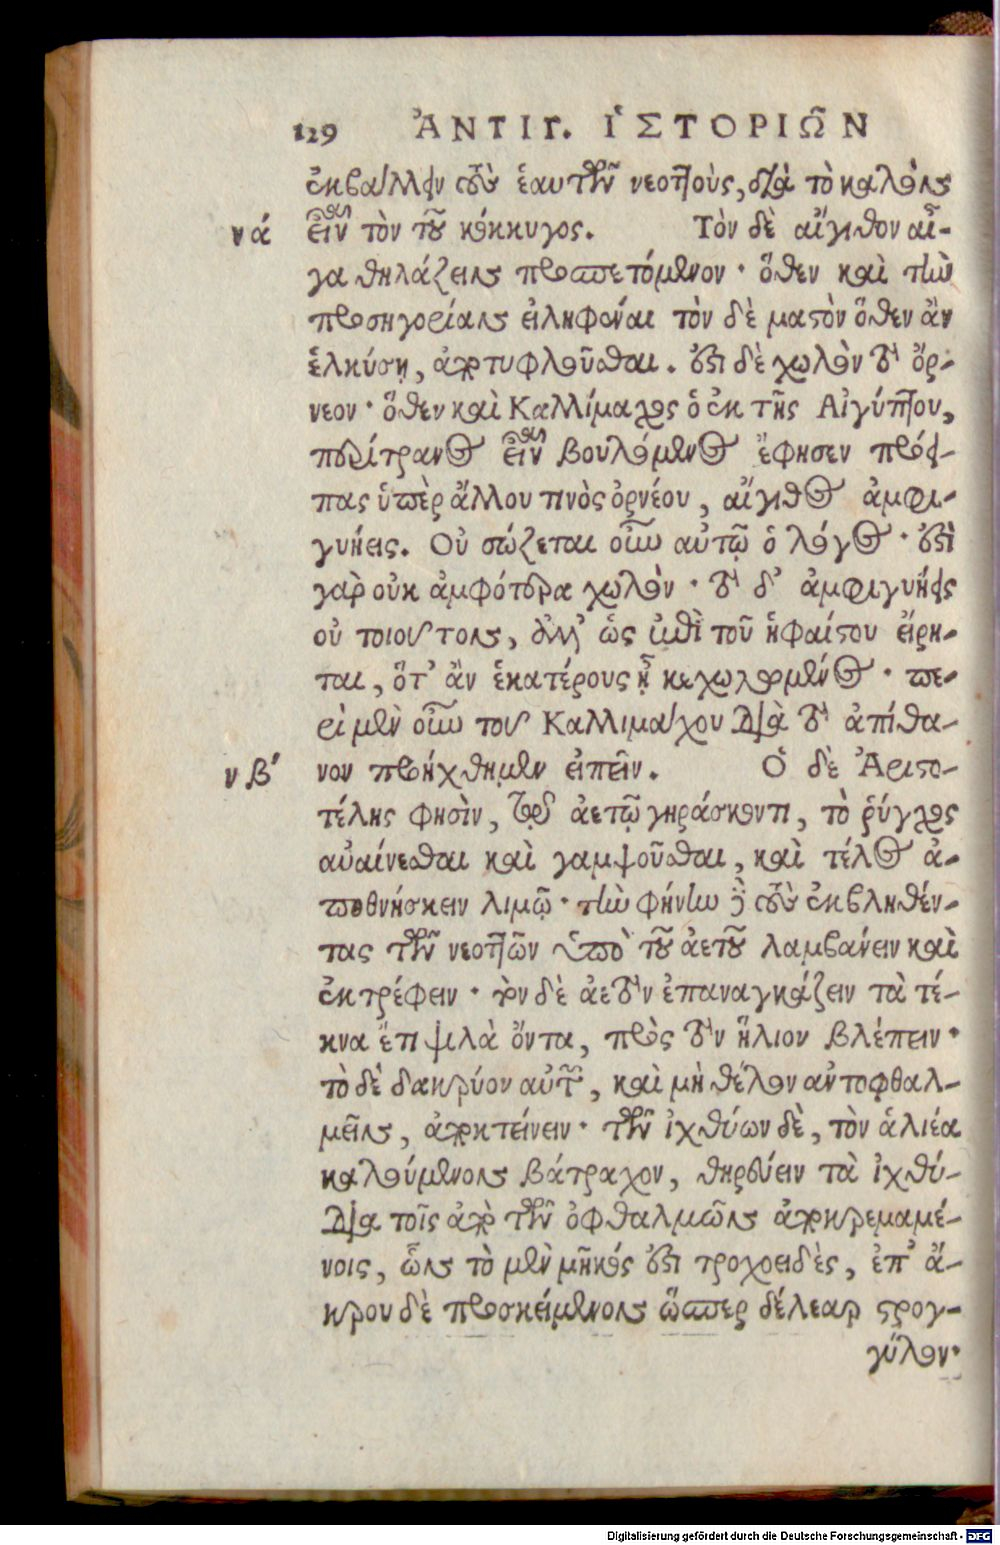 129 ἈΝΤΙΓ. ἹΣΤΟΡΙΩ͂Ν
ἐκβάλλειν τοὺς ἑαυτῶν νεοττοὺς, διὰ τὸ καλὸς
νά εἶναι τὸν τοῦ κόκκυγος. Τὸν δὲ αἴγιθον αἶ-
γα θηλάζειν προσπετόμενον· ὅθεν καὶ τὴν
προσηγορίαν εἰληφέναι τὸν δὲ μαστὸν ὅθεν ἂν
ἑλκύσῃ, ἀποτυφλοῦσθαι. ἔστι δὲ χωλὸν τὸ ὄρ-
νεον· ὅθεν καὶ Καλλίμαχος ὁ ἐκ τῆς Αἰγύπτου,
περίτρανος εἶναι βουλόμενος ἔφησεν πρός-
πας ὑπὲρ ἄλλου τινὸς ὀρνέου, αἴγιθος ἀμφι-
γυήεις. Οὐ σώζεται οὖν αὐτῷ ὁ λόγος· ἔστι
γὰρ οὐκ ἀμφότερα χωλὸν· τὸ δ' ἀμφιγυήεις
οὐ τοιοῦτον, ἀλλ' ὡς ἐπὶ τοῦ ἡφαίστου εἴρη-
ται, ὅτ' ἂν ἑκατέρους ᾖ κεχωλωμένος· πε-
ρὶ μὲν οὖν τοῦ Καλλιμάχου διὰ τὸ ἀπίθα-
νβ' νον προήχθημεν εἰπεῖν. Ὁ δὲ Ἀριστο-
τέλης φησὶν, τῷ ἀετῷ γηράσκοντι, τὸ ῥύγχος
αὐαίνεσθαι καὶ γαμψοῦσθαι, καὶ τέλος ἀ-
ποθνήσκειν λιμῷ· τὴν φήνην δὲ τοὺς ἐκβληθέν-
τας τῶν νεοττῶν ὑπὸ τοῦ ἀετοῦ λαμβάνειν καὶ
ἐκτρέφειν· τὸν δὲ ἀετὸν ἐπαναγκάζειν τὰ τέ-
κνα ἔτι ψιλὰ ὄντα, πρὸς τὸν ἥλιον βλέπειν·
τὸ δὲ δακρύον αὐτῶν, καὶ μὴ θέλον ἀντοφθαλ-
μεῖν, ἀποκτείνειν· τῶν ἰχθύων δὲ, τὸν ἁλιέα
καλούμενον βάτραχον, θηρεύειν τὰ ἰχθύ-
δια τοῖς ἀπὸ τῶν ὀφθαλμῶν ἀποκρεμαμέ-
νοις, ὧν τὸ μὲν μῆκός ἐστι τροχοειδὲς, ἐπ' ἄ-
κρου δὲ προσκείμενον ὥσπερ δέλεαρ στρογ-
γύλον·
Digitalisierung gefördert durch die Deutsche Forschungsgemeinschaft - DFG